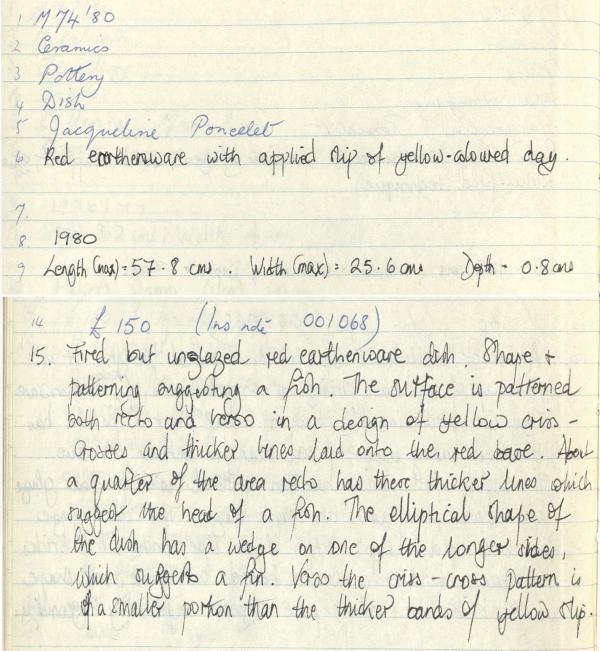 1 M74'80
2 Ceramics
3 Pottery
4 Dish
5 Jacqueline Poncelet
6 Red earthenware with applied slip of yellow-coloured clay.
7.
8. 1980
9 Length (max) = 57.8 cms. Width (max) = 25.6 cms Depth - 0.8 cms
14 £150 (Ins note 001068)
15. Fired but unglazed red earthenware dish shape +
patterning suggesting a fish. The surface is patterned
both recto and verso in a design of yellow criss-
crosses and thicker lines laid onto the red base. About
a quarter of the area recto has there thicker lines which
suggest the head of a fish. The elliptical shape of
the dish has a wedge on one of the longer sides,
which suggests a fin. Verso the criss-cross pattern is
of a smaller portion than the thicker bands of yellow slip.